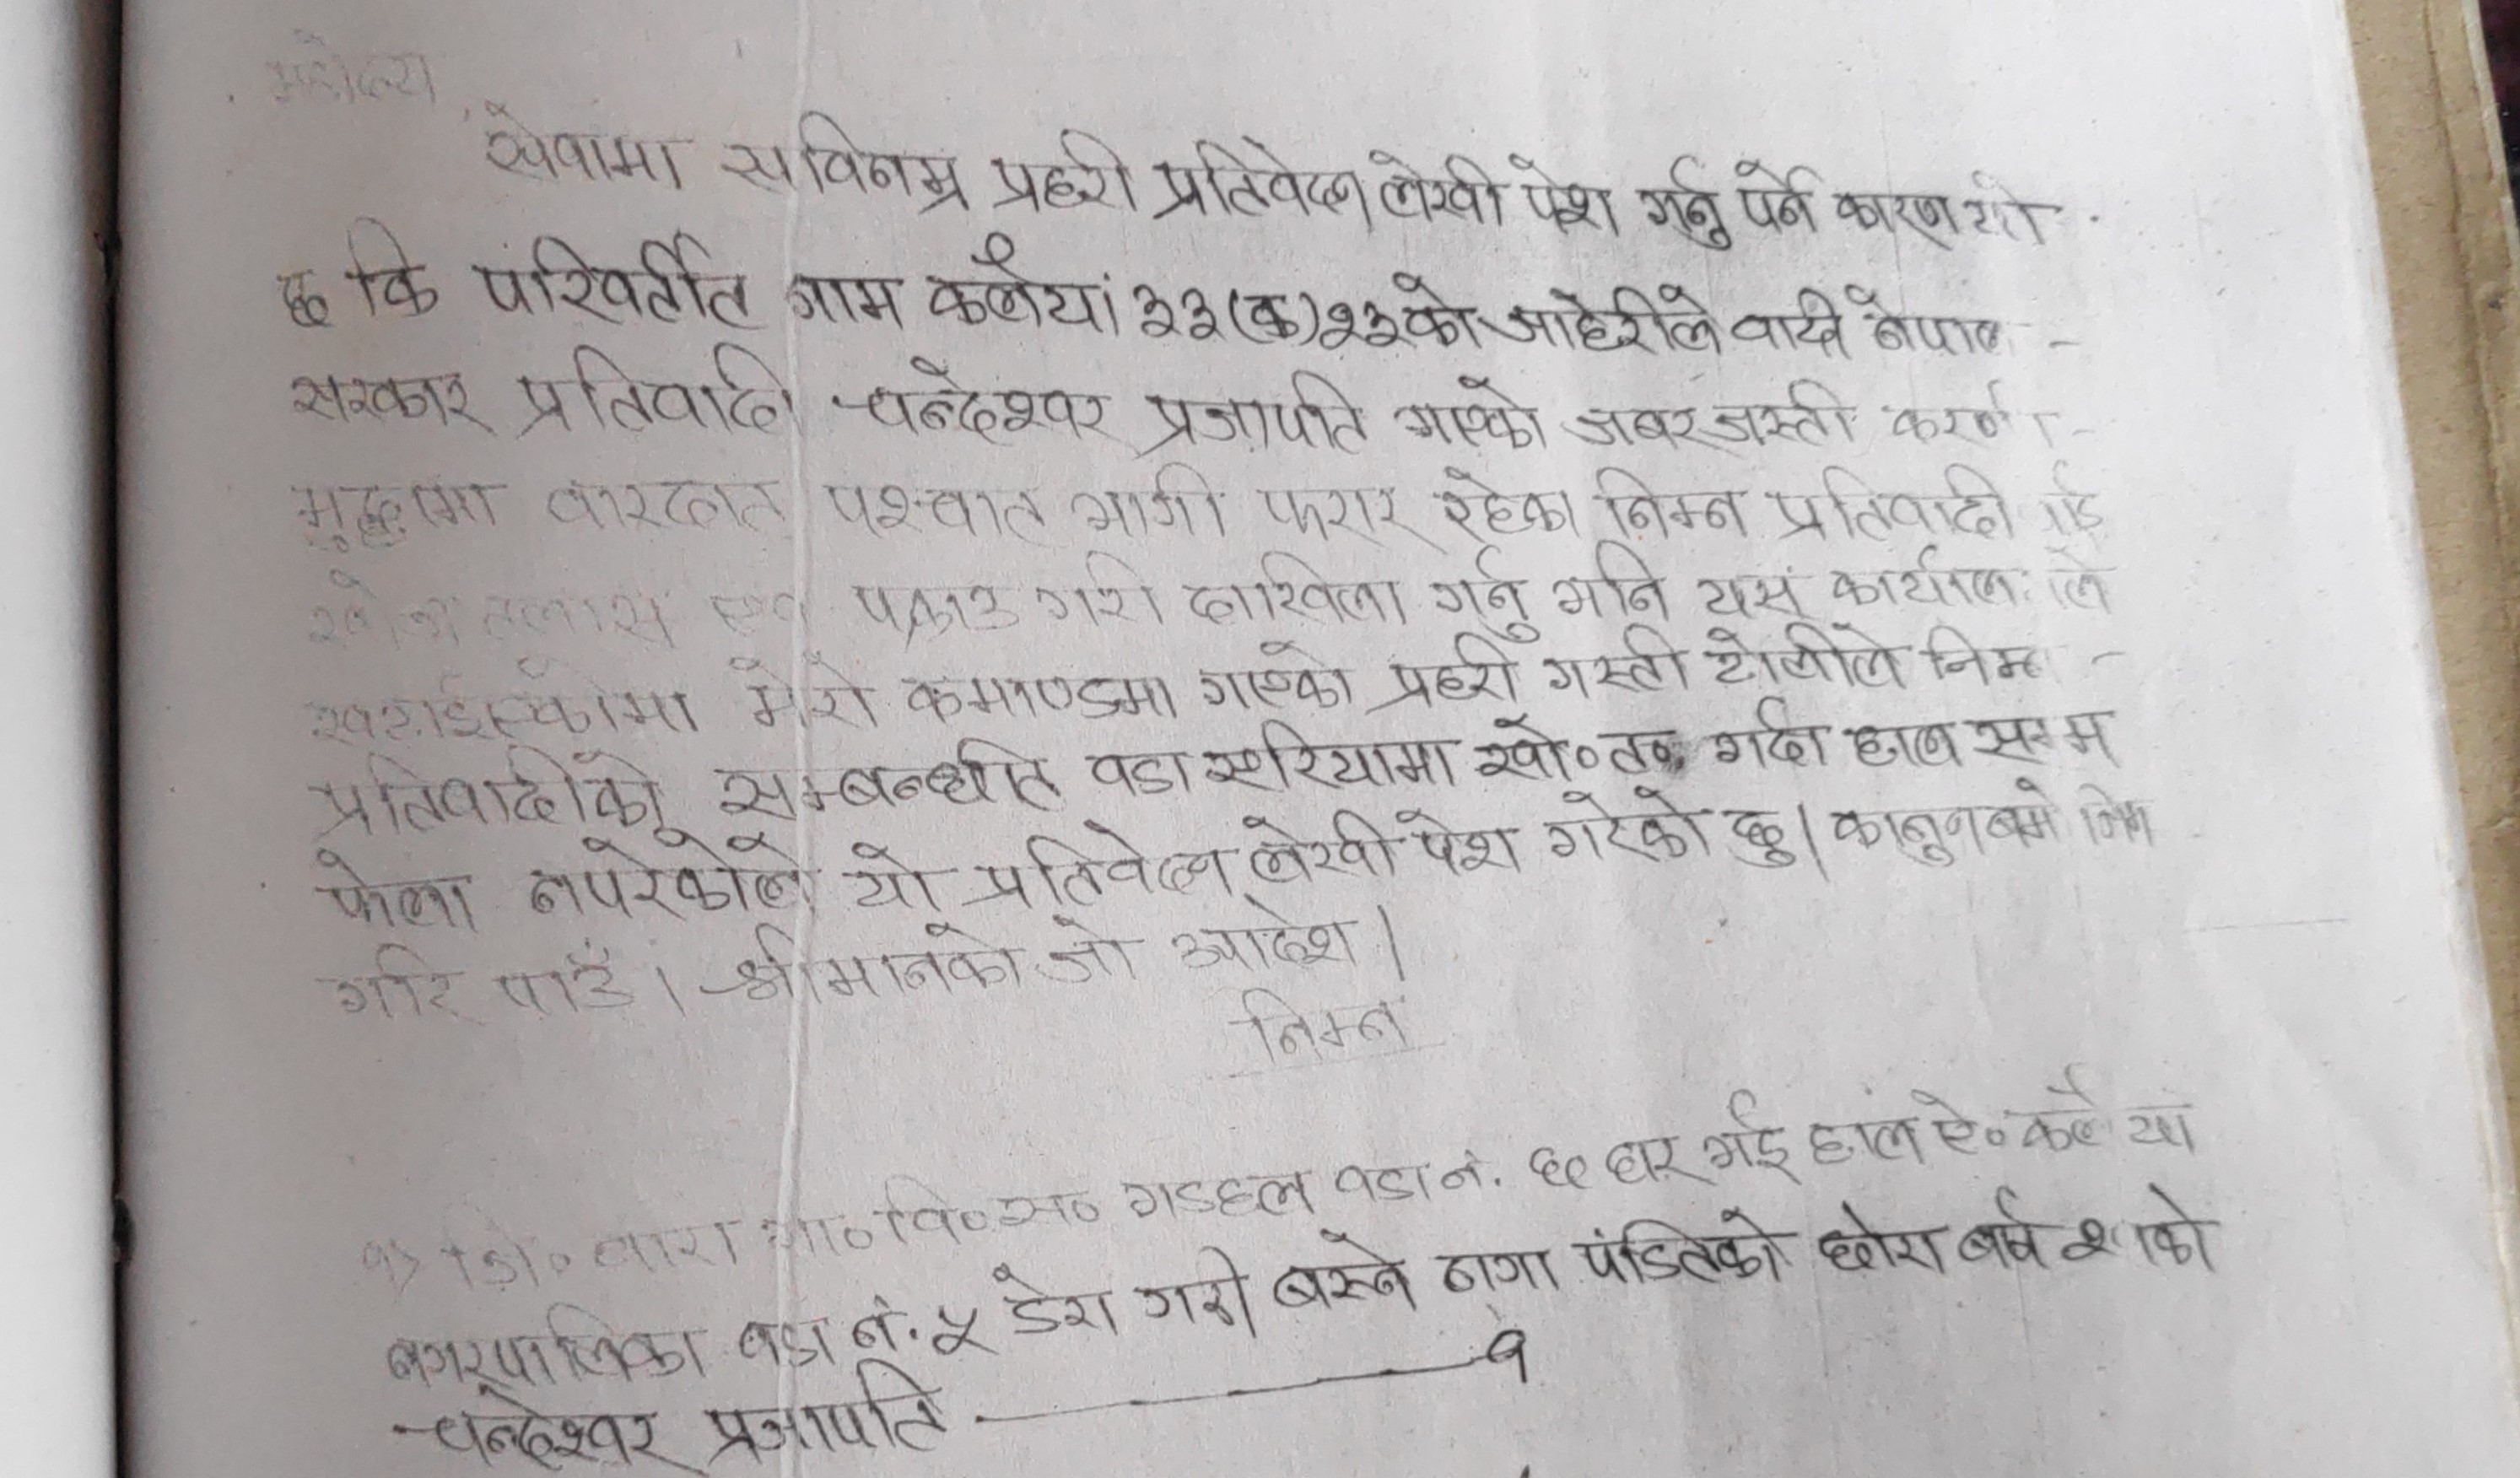 महोदय,
सेवामा सविनम्र प्रहरी प्रतिवेदन लेखी पेश गर्नु पर्ने कारण यो
छ कि परिवर्तीत नाम कलैया ३३(क)१३को जाहेरीले वादी नेपाल
सरकार प्रतिवादी चन्देश्वर प्रजापति भएको जबरजस्ती करणी
मुद्दामा वारदात पश्चात भागी फरार रहेका निम्न प्रतिवादी
खोज तलास एवं पक्राउ गरी दाखिला गर्नु भनि यस कार्यालयले
खटाईएकोमा मेरो कमाण्डमा गएको प्रहरी गस्ती टोलीले निम्न
प्रतिवादीको सम्बन्धीत वडा एरियामा खो०त० गर्दा हाल सम्म
फेला नपरेकोले यो प्रतिवेदन लेखी पेश गरेको छु। कानुन बमोजिम
गरि पाउँ। श्रीमानको जो आदेश।
निम्न
१) जि० बारा गा०वि०स० गडहल वडा नं. घर भई हाल ऐ० कलैया
नगरपालिका वडा नं. ५ डेरा गरी बस्ने नगा पंडितको छोरा बर्ष को
चन्देश्वर प्रजापति ———— १